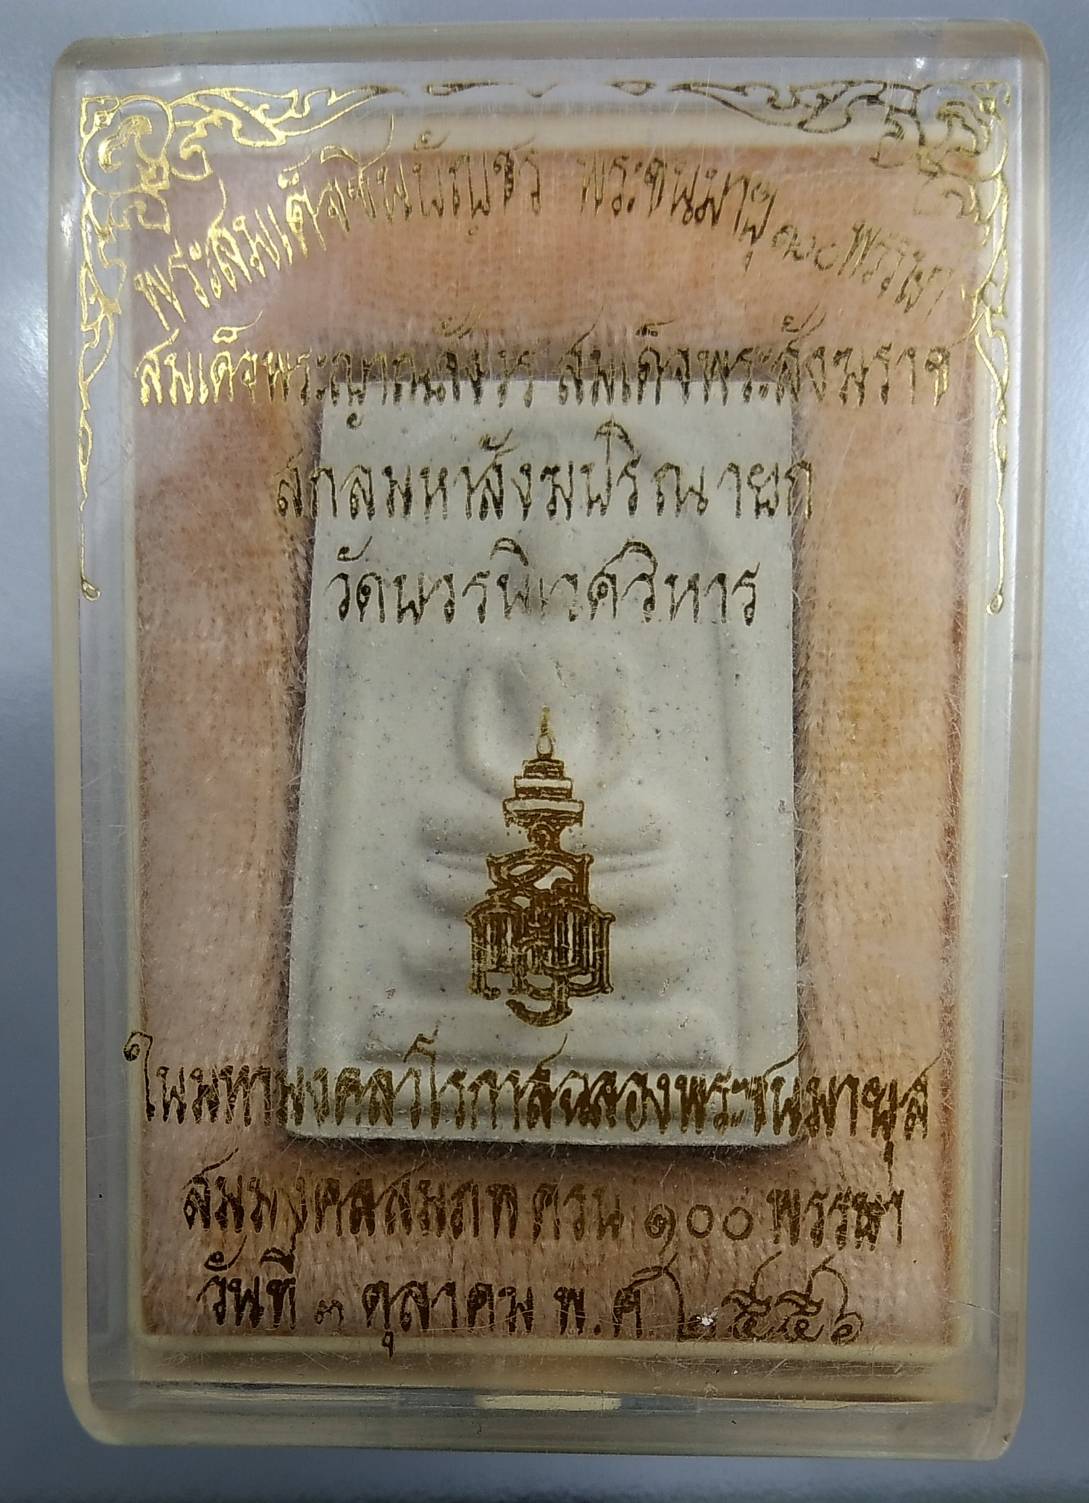 พระสมเด็จชินบัญชร พระชนมายุ ๑๐๐ พรรษา
สมเด็จพระญาณสังวร สมเด็จพระสังฆราช
สกลมหาสังฆปริณายก
วัดบวรนิเวศวิหาร
ในมหามงคลวโรกาสฉลองพระชนมายุส
สมมงคลสมภพ ครบ ๑๐๐ พรรษา
วันที่ ๓ ตุลาคม พ.ศ. ๒๕๕๖